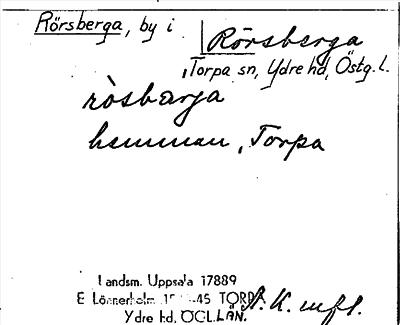 Rörsberga, by i
Rörsberga
Torpa sn, Ydre hd, Östg. l.
ròsbarja
hemman, Torpa
Landsm. Uppsala 17889
E Lönnerholm 45 TORPA
Ydre hd. ÖGL. LÄN.
A. K. mfl.